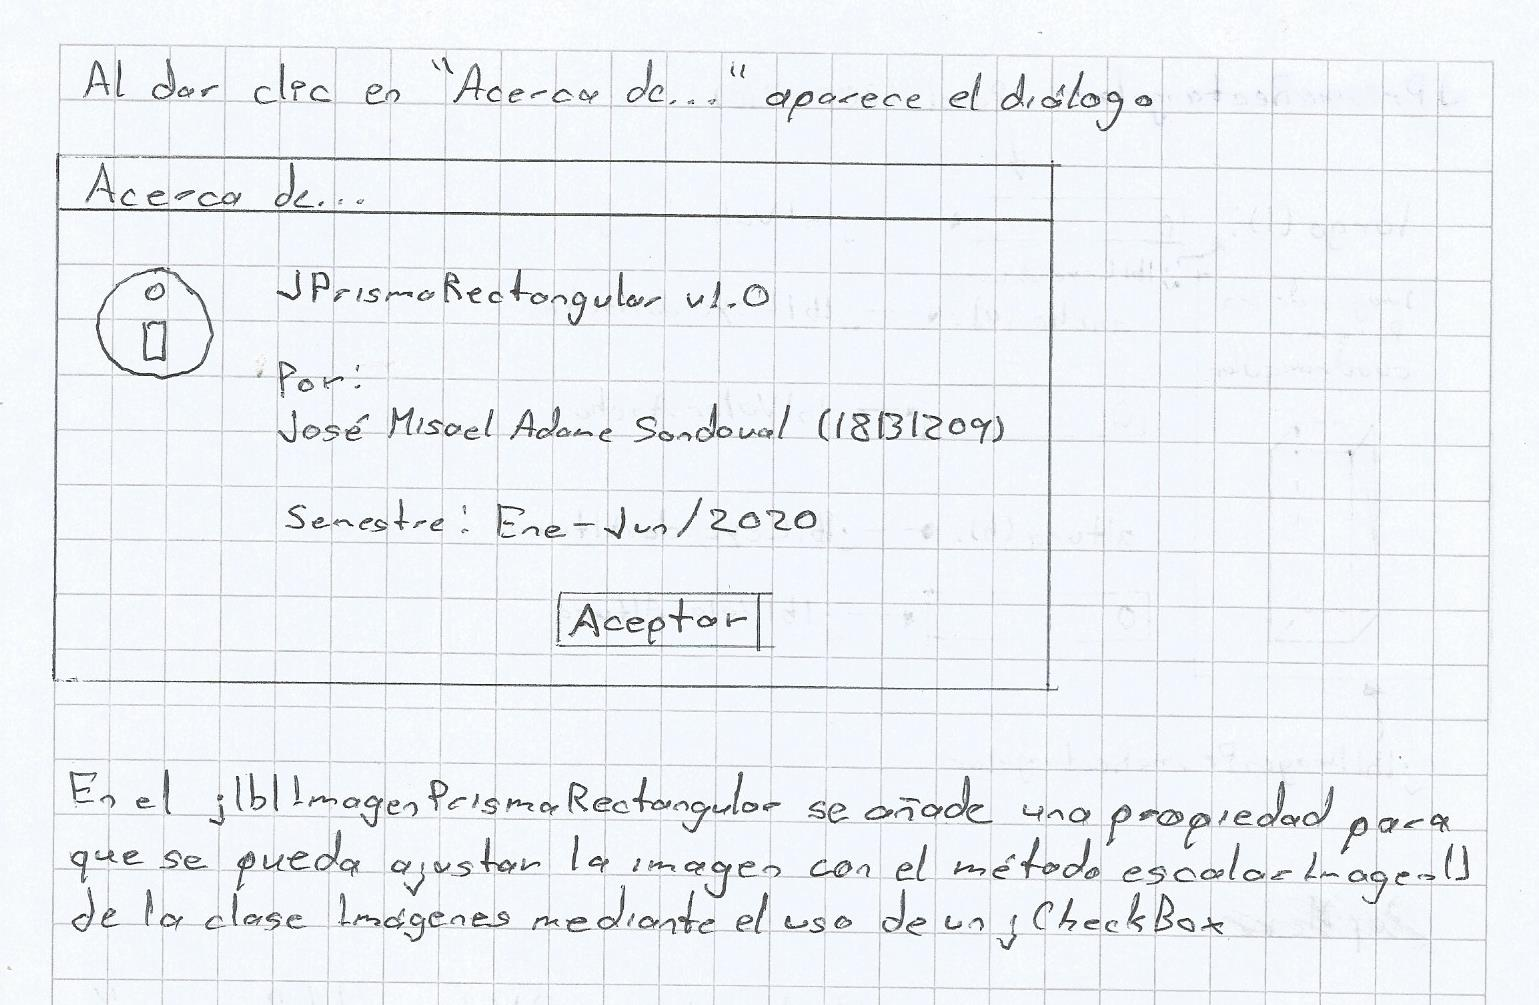 Al dar clic en "Acerca de..." aparece el diálogo
Acerca de...
JPrismaRectangular v1.0
Por:
José Misael Adame Sandoval (18131209)
Semestre: Ene-Jun/2020
Aceptar
En el jlblImagenPrismaRectangular se añade una propiedad para
que se pueda ajustar la imagen con el método escalarImagen()
de la clase Imágenes mediante el uso de un jCheckBox